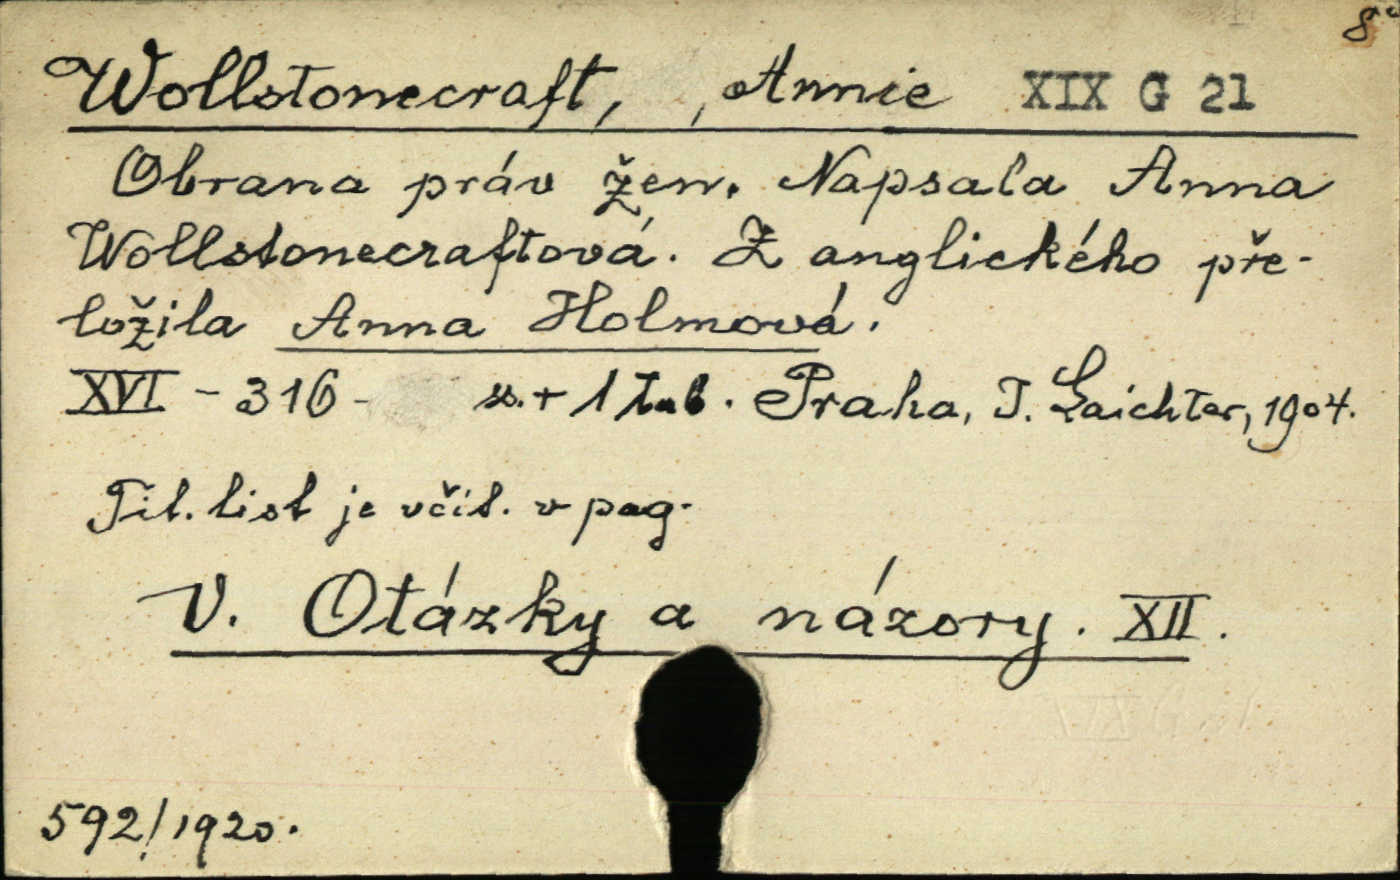 8°
Wollstonecraft, , Annie XIX G 21
Obrana práv žen. Napsala Anna
Wollstonecraftová. Z anglického pře-
ložila Anna Holmová.
XVI - 316 - s. + 1 tab. Praha, J. Laichter, 1904.
Tit. list je včit. v pag.
V. Otázky a názory. XII.
592/1920.